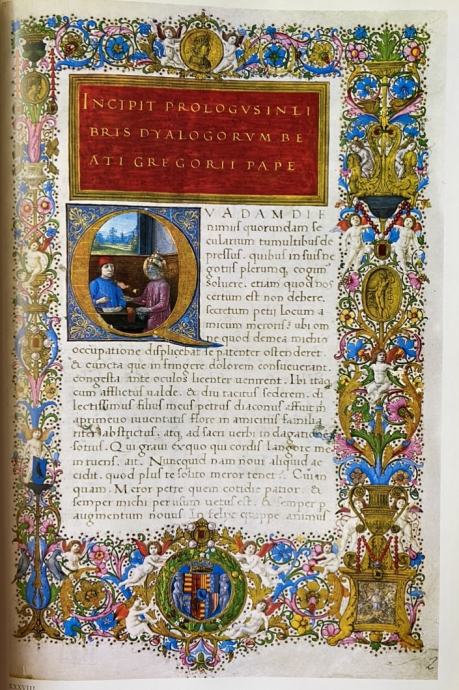 INCIPIT PROLOGVS IN LI
BRIS DYALOGORVM BE
ATI GREGORII PAPE
QVADAM DIE
nimus quorundam se
cularium tumultibus de
pressus. quibus in suis ne
gotiis plerumq; cogim
soluere. etiam quod nos
certum est non debere.
secretum petii locum a
micum meroris. ubi om
quod de mea michi
occupatione displicebat se patenter ostenderet.
& cuncta que infringere dolorem consueuerant.
congesta ante oculos licenter uenirent. Ibi itaq
cum afflictus ualde. & diu tacitus sederem. di
lectissimus filius meus petrus diaconus affuit m
a primeuo iuuentutis flore in amicitiis familia
obstrictus. atq ad sacri uerbi indagatione
sotius. Qui graui excoqui cordis langore me
intuens. ait. Nunquid nam noui aliquid ac
cidit. quod plus te solito meror tenet. Cui in
quam. Meror petre quem cotidie patior. &
semper michi per usum uetus est. & semper p
augmentum nouus. Infelix quippe animus
XXXVIII